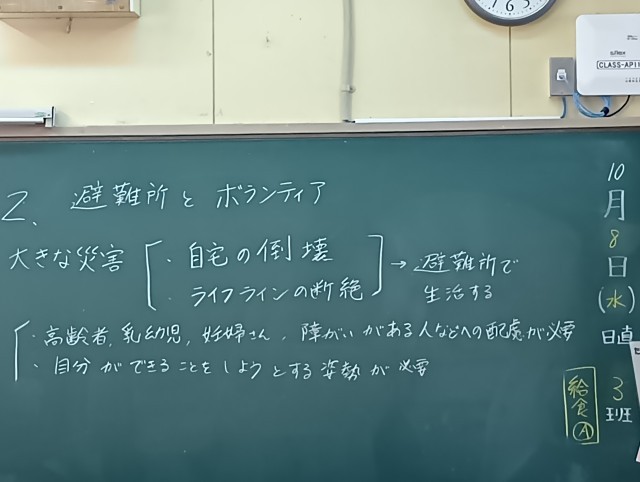 2、避難所とボランティア
大きな災害
・自宅の倒壊
・ライフラインの断絶
→避難所で
生活する
・高齢者、乳幼児、妊婦さん、障がいがある人などへの配慮が必要
・自分ができることをしようとする姿勢が必要
10
月
8
日
(水)
日直
3
班
給食
Ⓐ
CLASS-AP11
6
5